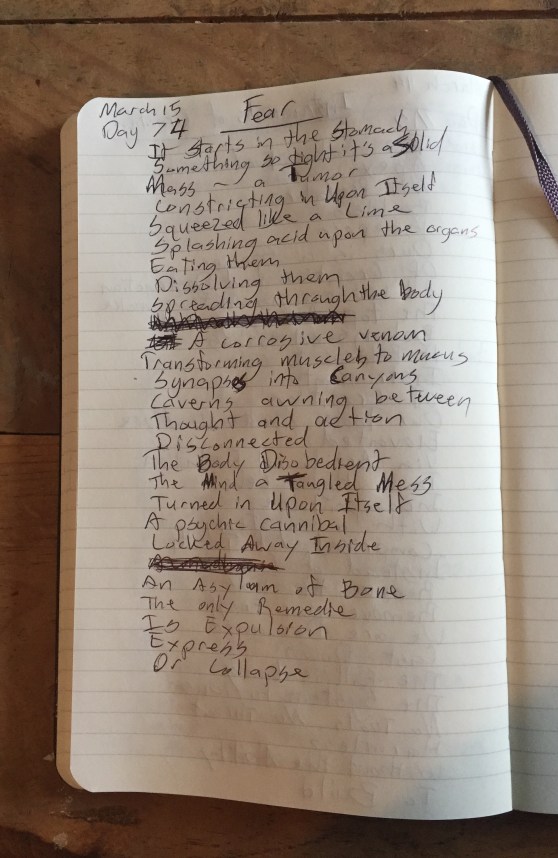 March 15
Fear
Day 74
It Starts in the Stomach
Something so tight it's a Solid
Mass ~ a Tumor
Constricting in Upon Itself
Squeezed like a Lime
Splashing acid upon the organs
Eating them
Dissolving them
Spreading through the body
A corrosive venom
Transforming muscles to mucus
Synapses into Canyons
Caverns awning between
Thought and action
Disconnected
The Body Disobedient
The Mind a Tangled Mess
Turned in Upon Itself
A psychic cannibal
Locked Away Inside
An Asylum of Bone
The only Remedie
Is Expulsion
Express
Or Collapse